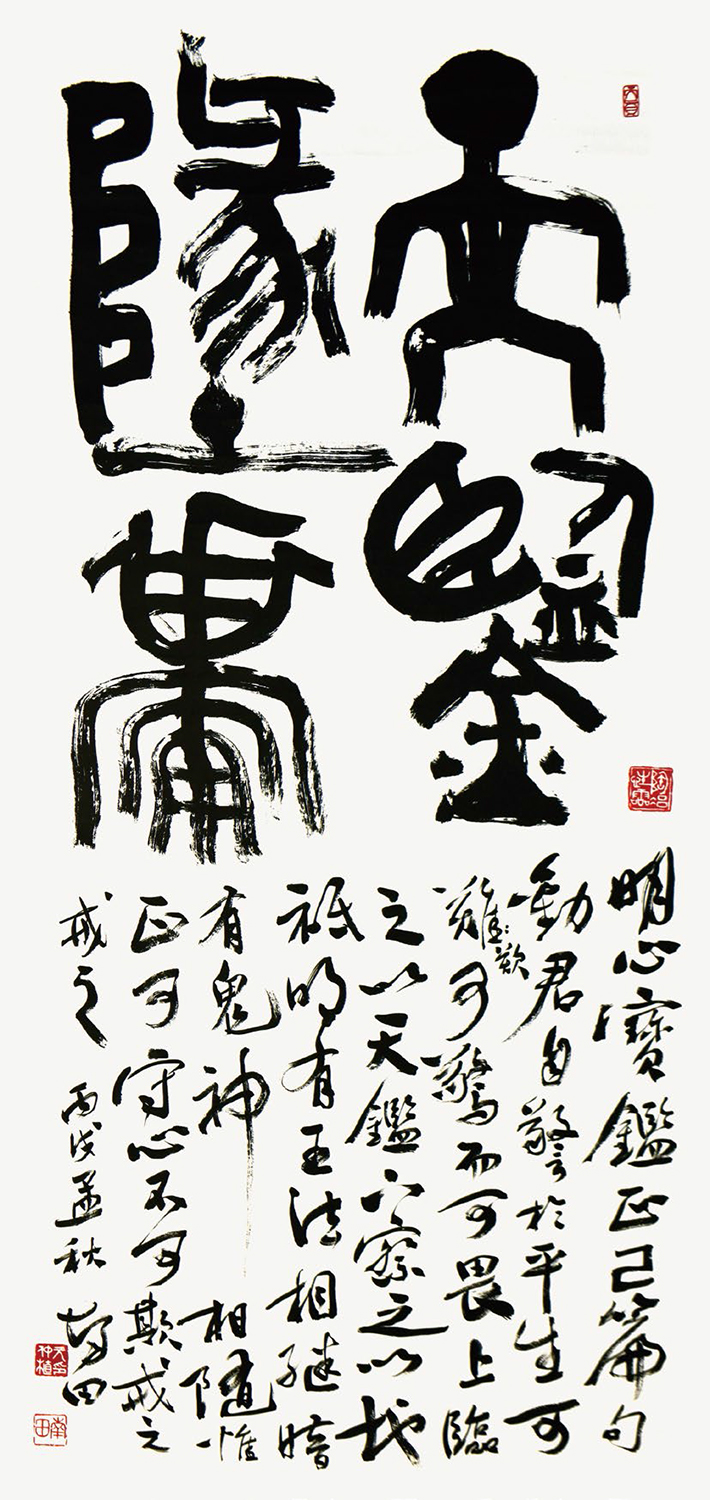 天鑒
墬黹
明心寶鑑正己篇句
勸君自警於平生可
難歎可驚而可畏上臨
之以天鑑下察之以地
祗明有王法相繼暗
有鬼神相隨惟
正可守心不可欺戒之
戒之 丙戌孟秋 田
南田